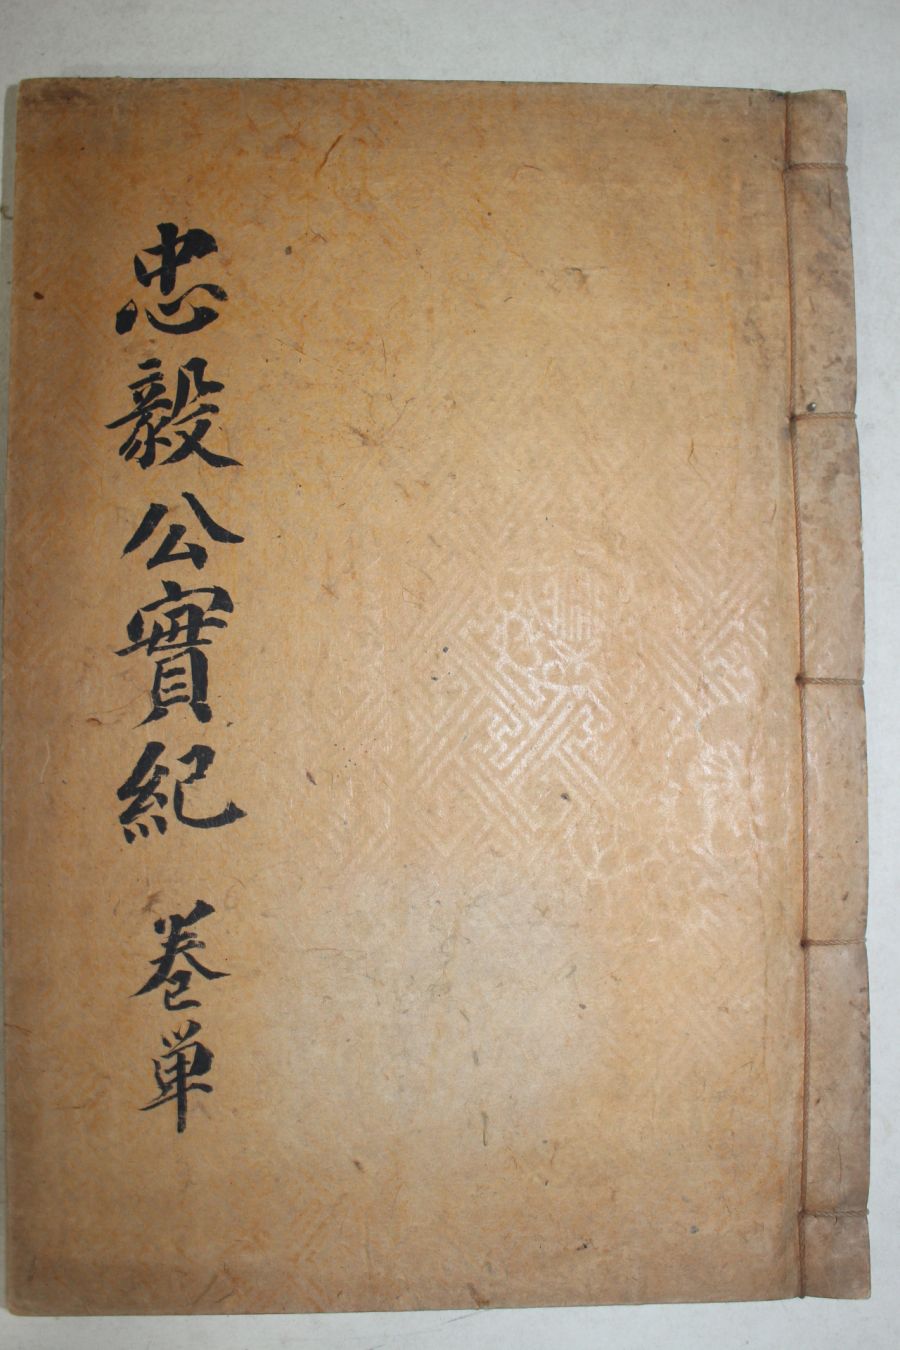 忠毅公實紀 卷単